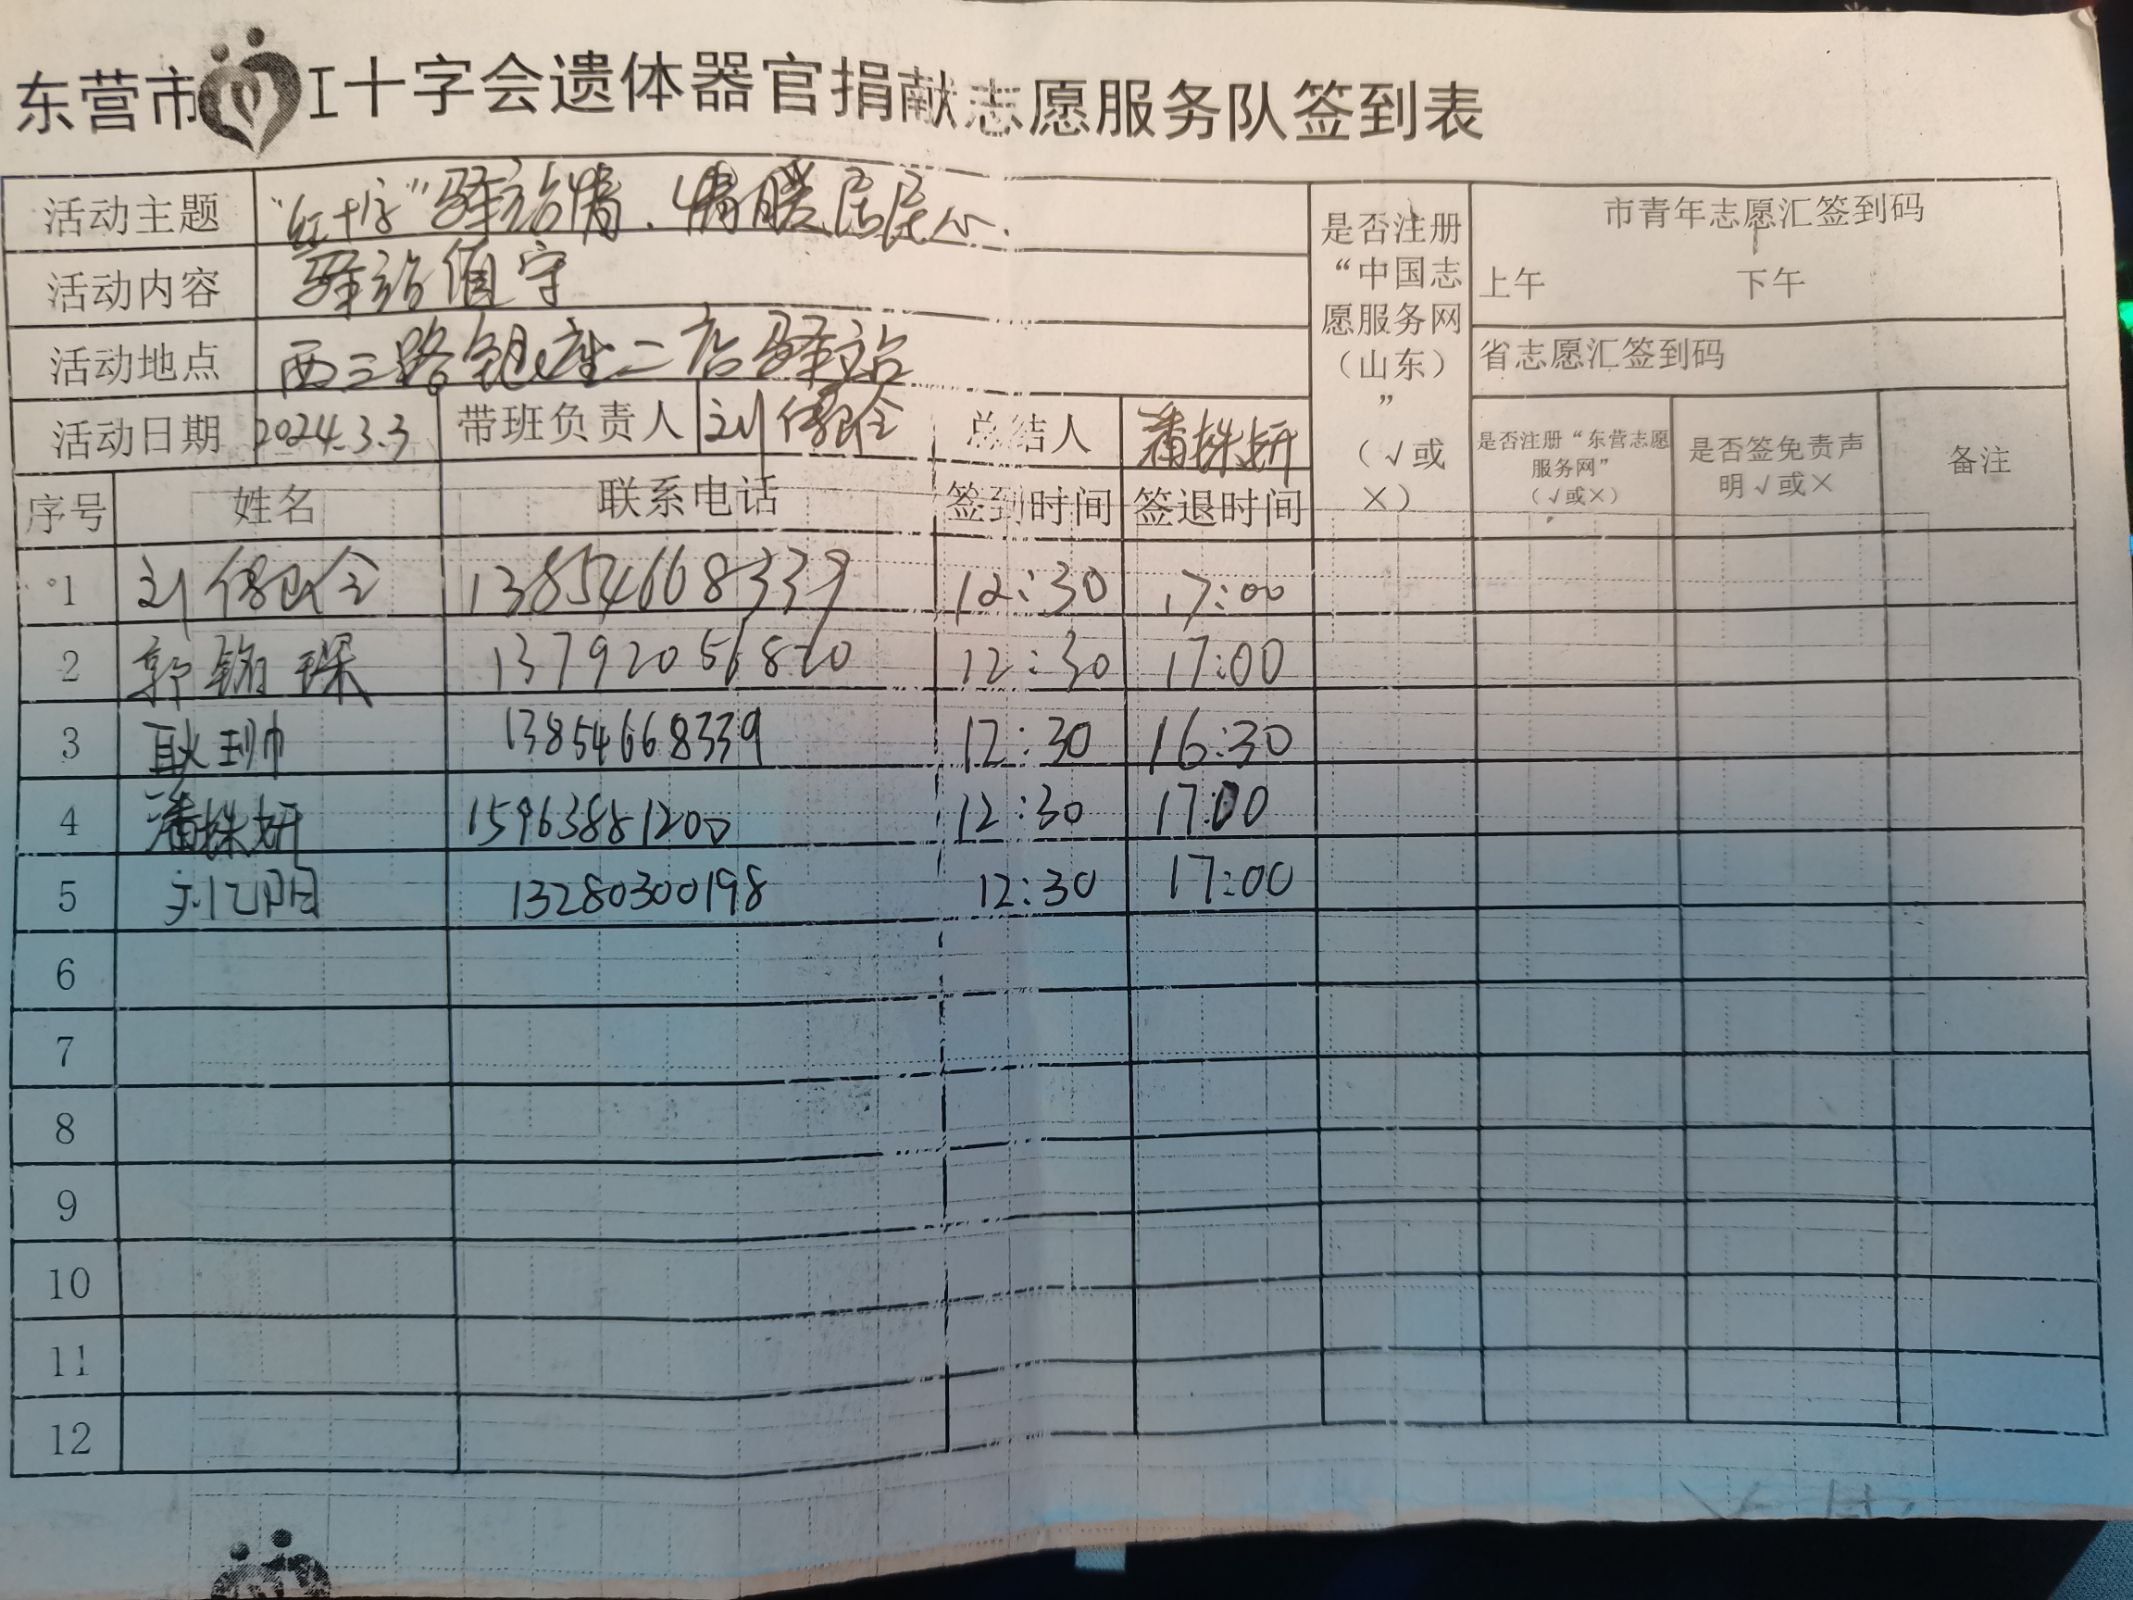 东营市红十字会遗体器官捐献志愿服务队签到表
活动主题 “红十字”驿站情、情暖居民心.
是否注册“中国志愿服务网（山东）”（√或×）
市青年志愿汇签到码
上午 下午
活动内容 驿站值守
活动地点 西三路银座二店驿站
省志愿汇签到码
活动日期 2024.3.3 带班负责人 刘 总结人 潘姝妍
是否注册“东营志愿服务网”（√或×） 是否签免责声明√或× 备注
序号 姓名 联系电话 签到时间 签退时间
1 刘 13854668339 12:30 17:00
2 郭 琛 13792056820 12:30 17:00
3 耿 13854668339 12:30 16:30
4 潘姝妍 15963881200 12:30 17:00
5 刘 13280300198 12:30 17:00
6
7
8
9
10
11
12